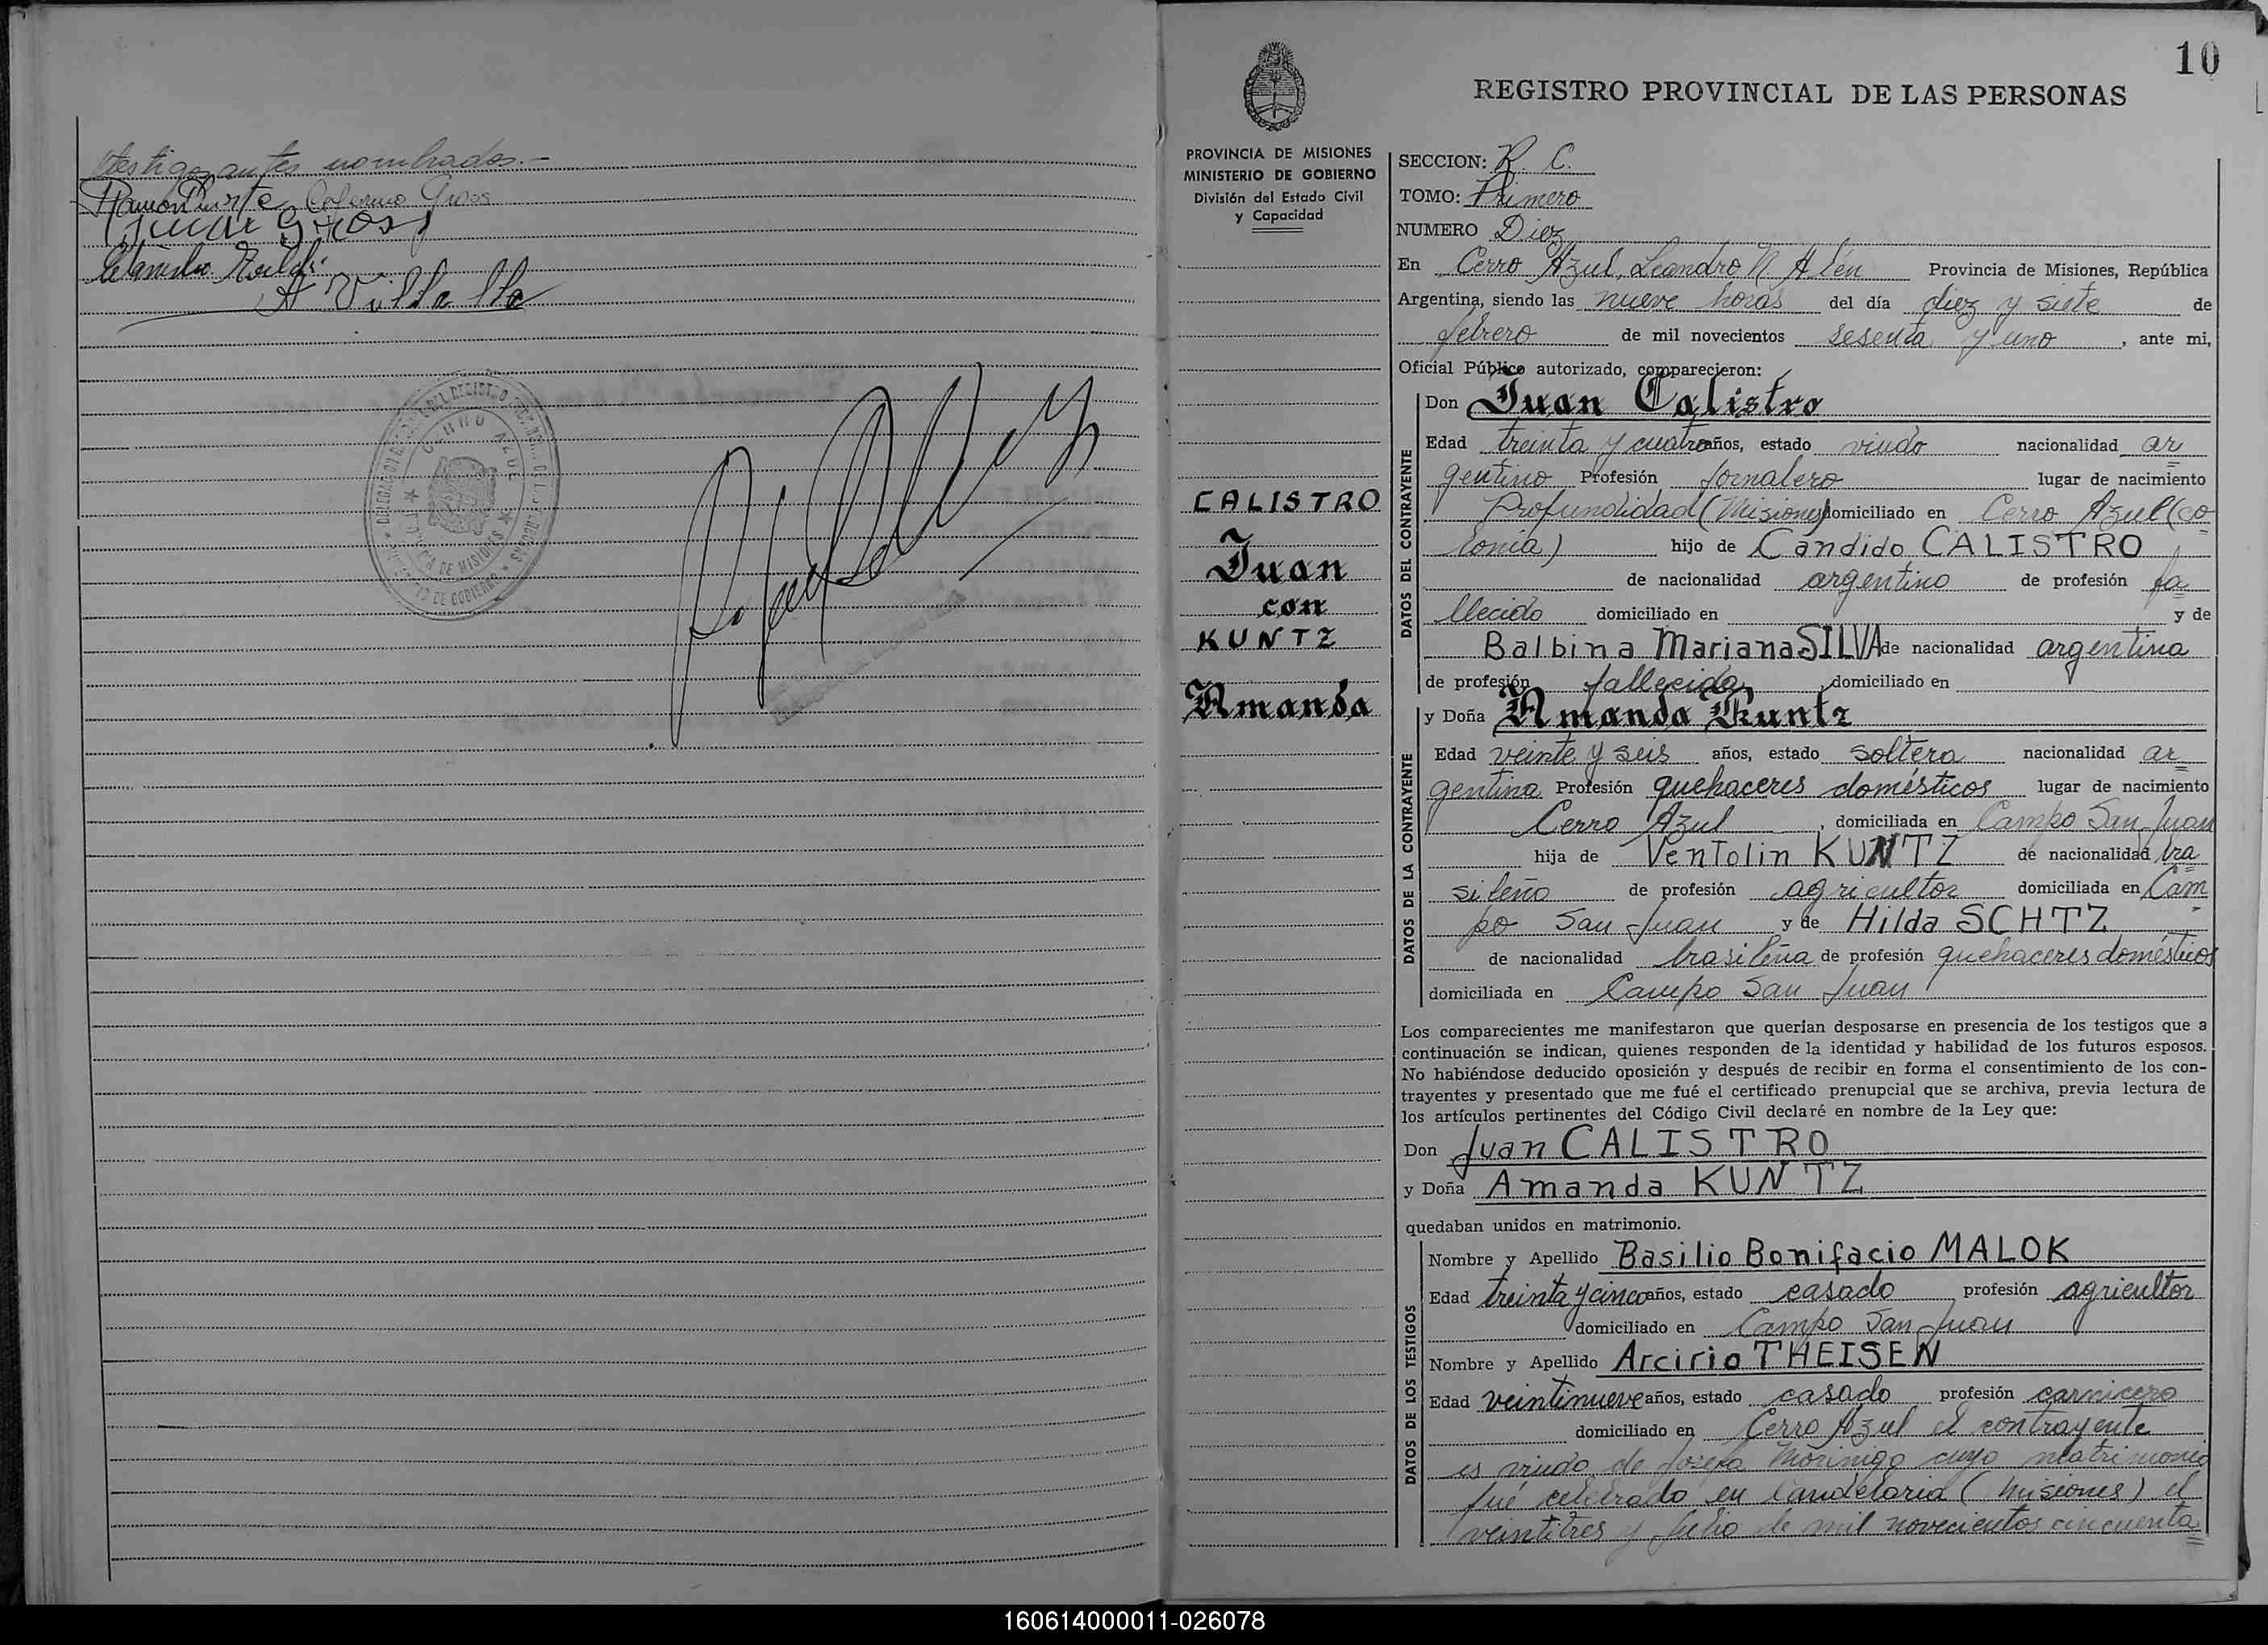 testigos antes nombrados.-
Ramón
Gross
A Villalba
CERRO AZUL
10
REGISTRO PROVINCIAL DE LAS PERSONAS
PROVINCIA DE MISIONES
MINISTERIO DE GOBIERNO
División del Estado Civil
y Capacidad
CALISTRO
Juan
con
KUNTZ
Amanda
SECCION: R C.
TOMO: Primero
NUMERO Diez
En Cerro Azul, Leandro N Alén Provincia de Misiones, República
Argentina, siendo las nueve horas del día diez y siete de
febrero de mil novecientos sesenta y uno, ante mi,
Oficial Público autorizado, comparecieron:
DATOS DEL CONTRAYENTE
Don Juan Calistro
Edad treinta y cuatro años, estado viudo nacionalidad ar
gentino Profesión Jornalero lugar de nacimiento
Profundidad (Misiones) domiciliado en Cerro Azul (co
lonia) hijo de Candido CALISTRO
de nacionalidad argentino de profesión fa
llecido domiciliado en y de
Balbina Mariana SILVA de nacionalidad argentina
de profesión fallecida domiciliado en
DATOS DE LA CONTRAYENTE
y Doña Amanda Kuntz
Edad veinte y seis años, estado soltera nacionalidad ar
gentina Profesión quehaceres domésticos lugar de nacimiento
Cerro Azul, domiciliada en Campo San Juan
hija de Ventolin KUNTZ de nacionalidad bra
sileño de profesión agricultor domiciliada en Cam
po San Juan y de Hilda SCHTZ
de nacionalidad brasileña de profesión quehaceres domésticos
domiciliada en Campo San Juan
Los comparecientes me manifestaron que querían desposarse en presencia de los testigos que a
continuación se indican, quienes responden de la identidad y habilidad de los futuros esposos.
No habiéndose deducido oposición y después de recibir en forma el consentimiento de los con-
trayentes y presentado que me fué el certificado prenupcial que se archiva, previa lectura de
los artículos pertinentes del Código Civil declaré en nombre de la Ley que:
Don Juan CALISTRO
y Doña Amanda KUNTZ
quedaban unidos en matrimonio.
DATOS DE LOS TESTIGOS
Nombre y Apellido Basilio Bonifacio MALOK
Edad treinta y cinco años, estado casado profesión agricultor
domiciliado en Campo San Juan
Nombre y Apellido Arcirio THEISEN
Edad veintinueve años, estado casado profesión carnicero
domiciliado en Cerro Azul el contrayente
es viudo de Josefa Morinigo cuyo matrimonio
fué celebrado en Candelaria (Misiones) el
veintitres y Julio de mil novecientos cincuenta
160614000011-026078